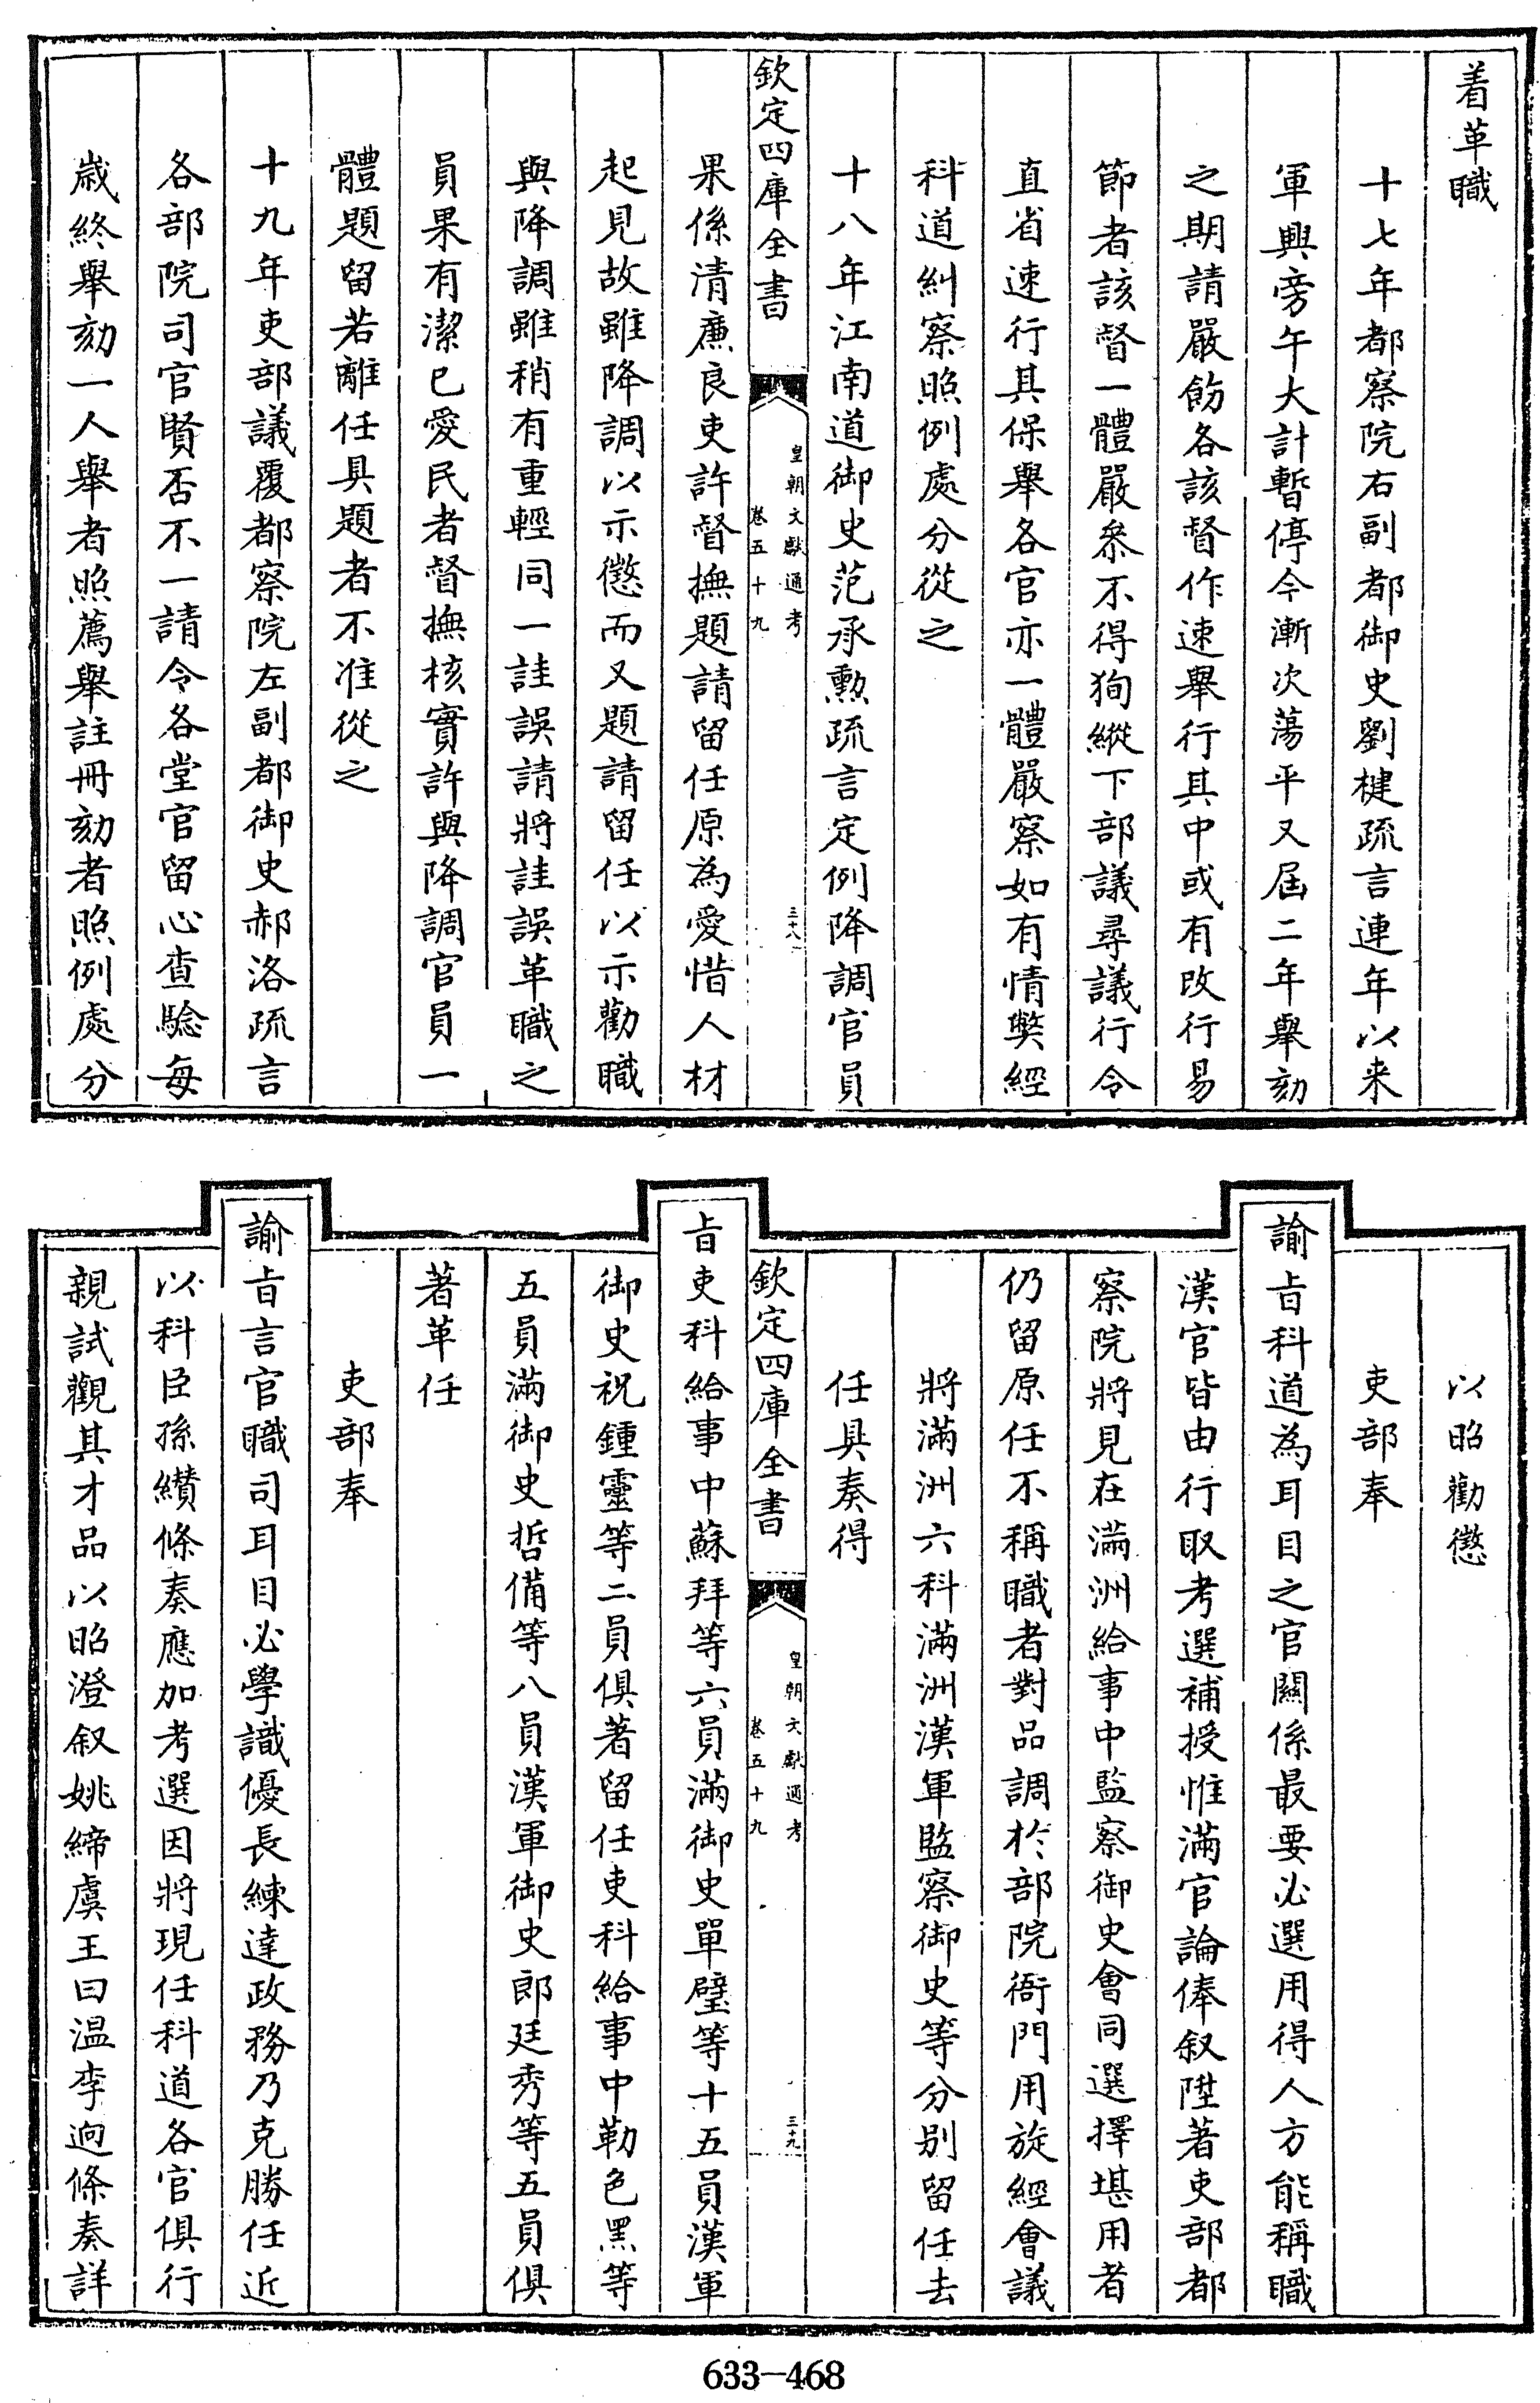 着革職
十七年都察院右副都御史劉楗疏言連年以来
軍興旁午大計暫停今漸次蕩平又屆二年舉劾
之期請嚴飭各該督作速舉行其中或有改行易
節者該督一體嚴叅不得狥縱下部議尋議行令
直省速行其保舉各官亦一體嚴察如有情獘經
科道糾察照例處分從之
十八年江南道御史范承勲疏言定例降調官員
欽定四庫全書
皇朝文獻通考
卷五十九
三十八
果係清亷良吏許督撫題請留任原為愛惜人材
起見故雖降調以示懲而又題請留任以示勸職
與降調雖稍有重輕同一詿誤請將詿誤革職之
員果有潔已愛民者督撫核實許與降調官員一
體題留若離任具題者不准從之
十九年吏部議覆都察院左副都御史郝洛疏言
各部院司官賢否不一請令各堂官留心查驗每
歲終舉劾一人舉者照薦舉註冊劾者照例處分
以昭勸懲
吏部奉
諭旨科道為耳目之官關係最要必選用得人方能稱職
漢官皆由行取考選補授惟滿官論俸叙陞著吏部都
察院將見在滿洲給事中監察御史會同選擇堪用者
仍留原任不稱職者對品調於部院衙門用旋經會議
將滿洲六科滿洲漢軍監察御史等分别留任去
任具奏得
欽定四庫全書
皇朝文獻通考
卷五十九
三十九
旨吏科給事中蘇拜等六員滿御史單璧等十五員漢軍
御史祝鍾靈等二員俱著留任吏科給事中勒色黑等
五員滿御史哲備等八員漢軍御史郎廷秀等五員俱
著革任
吏部奉
諭旨言官職司耳目必學識優長練達政務乃克勝任近
以科臣孫纘條奏應加考選因將現任科道各官俱行
親試觀其才品以昭澄叙姚締虞王曰温李逈條奏詳
633-468